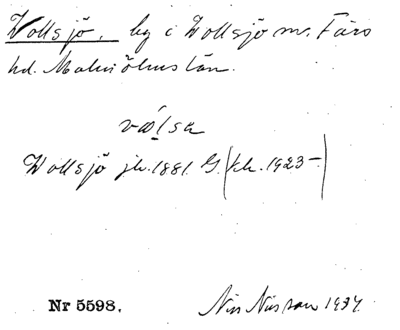 Vollsjö, by i Vollsjö sn. Färs
hd. Malmöhus län.
Vollsjö jh. 1881. G. (kh. 1923-)
Nr 5598. Nils Nilsson 1937.